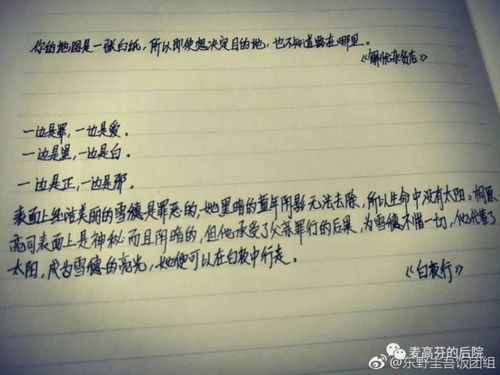 你的地图是一张白纸，所以即使想决定目的地，也不知道路在哪里。
《解忧杂货店》
一边是罪，一边是爱。
一边是黑，一边是白。
一边是正，一边是邪。
表面上纯洁美丽的雪德是罪恶的，她黑暗的童年阴影无法去除，所以生命中没有太阳。桐原
亮司表面上是神秘而且阴暗的，但他承受了父亲罪行的后果，为雪德不惜一切，他代替了
太阳，成为雪德的亮光，她便可以在白夜中行走。
《白夜行》
麦高芬的后院
@东野圭吾饭团组